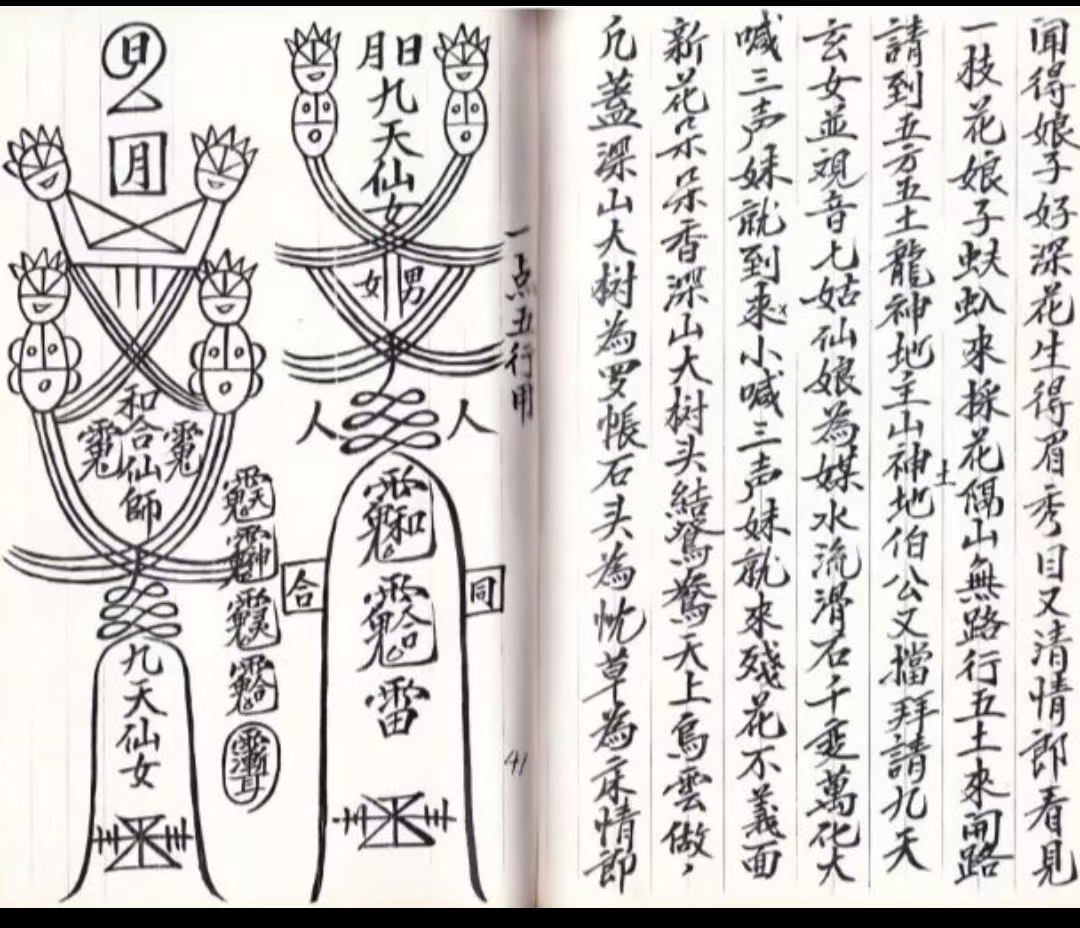 闻得娘子好深花生得眉秀目又清情郎看見
一枝花娘子蚨虬來採花隔山無路行五土來開路
請到五方五土龍神地主山神土地伯公又擋拜請九天
玄女並观音七姑仙娘為媒水流滑石千变萬化大
喊三声妹就到來小喊三声妹就來殘花不義面
新花朵朵香深山大树头結鴛鴦天上烏雲做
凢蓋深山大树為罗帳石头為枕草為床情郎
一点五行用
41
日月
九天仙女
男女
人人
和
合
雷
合同
月
和合仙師
九天仙女